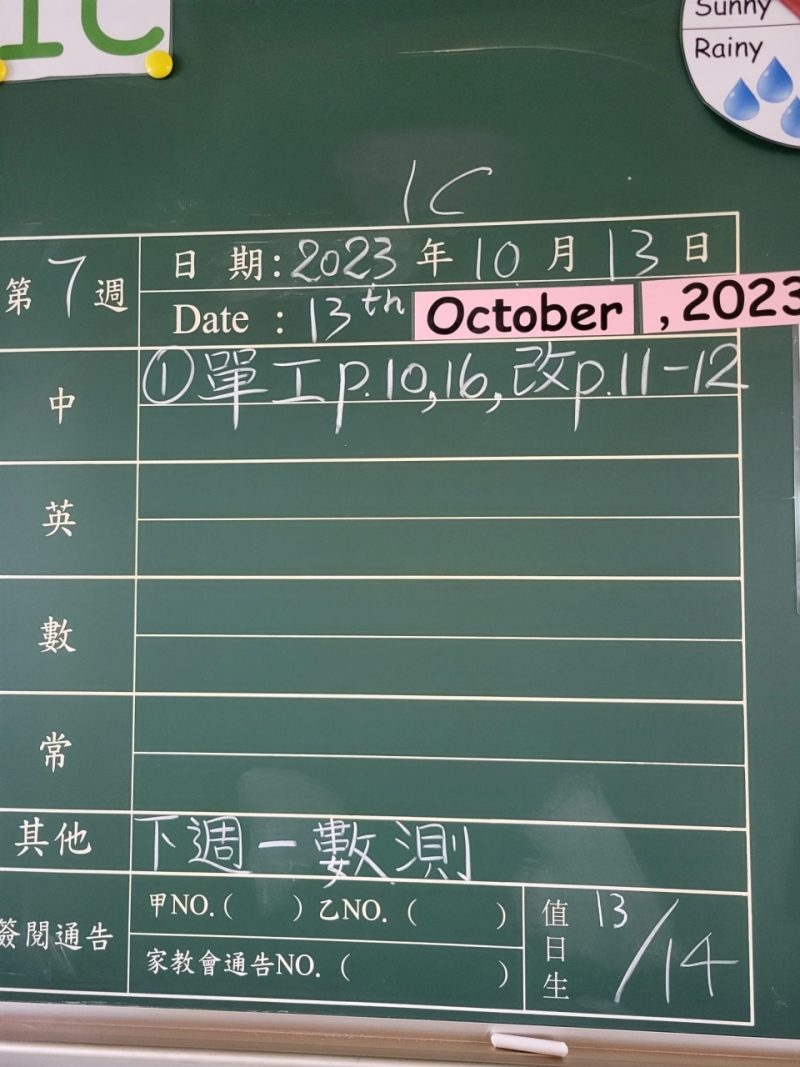 1C
Sunny
Rainy
1C
第7週
日期:2023年10月13日
Date : 13th October , 2023
中
①單工p.10,16,改p.11-12
英
數
常
其他
下週一數測
簽閱通告
甲NO.( ) 乙NO. ( )
家教會通告NO. ( )
值日生
13/14